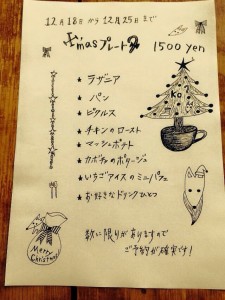 12月18日から12月25日まで
X'masプレート 1500yen
★ ラザニア
★ パン
★ ピクルス
★ チキンのロースト
★ マッシュポテト
★ カボチャのポタージュ
★ いちごアイスのミニパフェ
★ お好きなドリンクひとつ
Merry
Christmas
数に限りがありますので
ご予約が確実です!